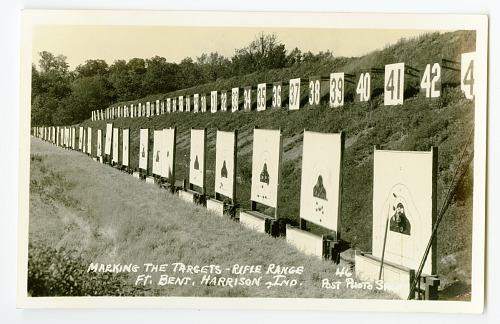 32 33 34 35 36 37 38 39 40 41 42 4
MARKING THE TARGETS - RIFLE RANGE
FT. BENT. HARRISON, IND.
46
POST PHOTO